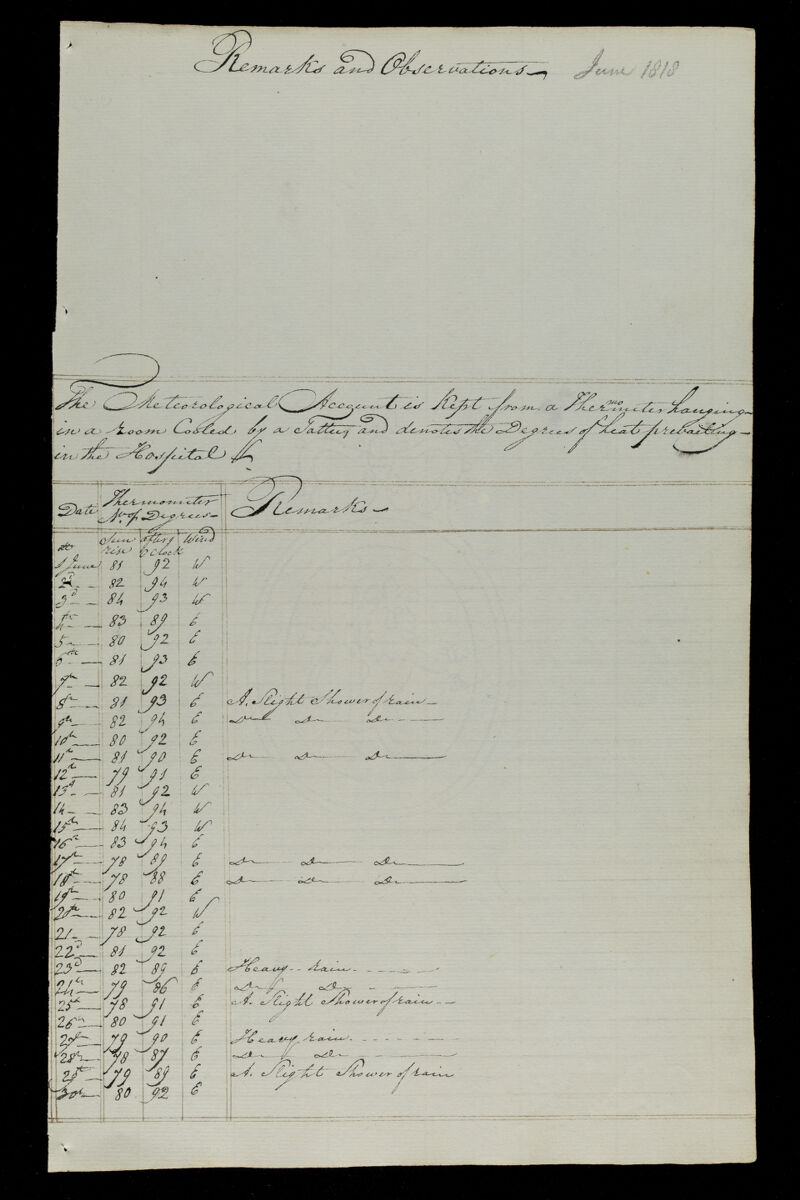 Remarks and Observations June 1818
The Meteorological Account is Kept from a Thermometer hanging
in a room Cooled by a Tatty and denotes the Degrees of heat prevailing
in the Hospital
Date Thermometer Remarks
No. of Degrees
Sun after Wind
rise Clock
1 June 81 92 W
2d 82 94 W
3d 84 93 W
4th 83 89 E
5 80 92 E
6th 81 93 E
7th 82 92 W
8th 81 93 E A. Slight Shower of rain
9th 82 94 E Do Do Do
10th 80 92 E
11th 81 90 E Do Do Do
12th 79 91 E
13th 81 92 W
14 83 94 W
15th 84 93 W
16th 83 94 E
17th 78 89 E Do Do Do
18th 78 88 E Do Do Do
19th 80 91 E
20th 82 92 W
21 78 92 E
22d 81 92 E
23d 82 89 E Heavy rain
24th 79 86 E Do Do
25th 78 91 E A. Slight Shower of rain
26th 80 91 E
27th 79 90 E Heavy rain
28th 78 87 E Do Do
29th 79 89 E A. Slight Shower of rain
30th 80 92 E